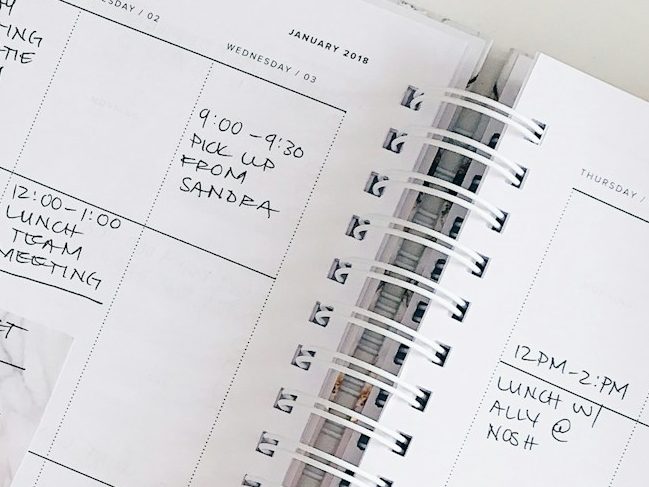 JANUARY 2018
SDAY / 02
TING
-TIE
12:00-1:00
LUNCH
TEAM
MEETING
ET
WEDNESDAY / 03
9:00-9:30
PICK UP
FROM
SANDRA
THURSDAY /
12PM-2:PM
LUNCH W/
ALLY @
NOSH